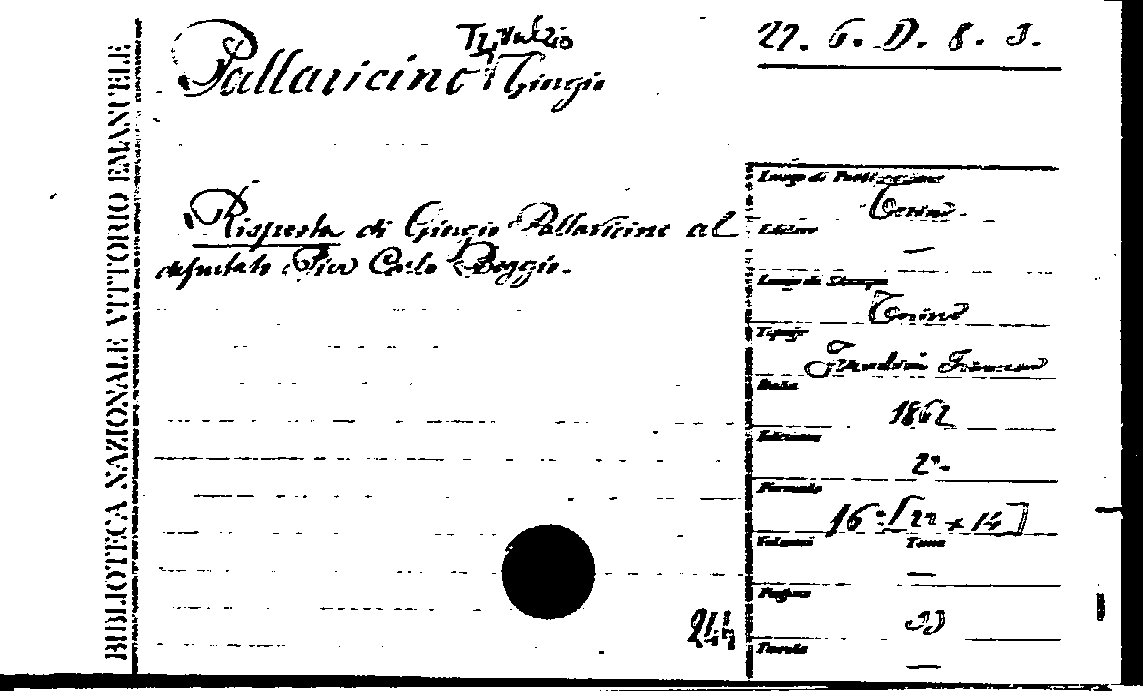 BIBLIOTECA NAZIONALE VITTORIO EMANUELE
Trivulzio
Pallavicino Giorgio
22. 6. D. 8. 3.
Risposta di Giorgio Pallavicino al
deputato Pier Carlo Boggio.
Luogo di Pubblicazione
Torino.
Editore
—
Luogo di Stampa
Torino
Tipogr.
Data
1862
Edizione
2ª.
Formato
16º [22 x 14]
Volumi Tomo
—
Pagine
Tavole
—
244